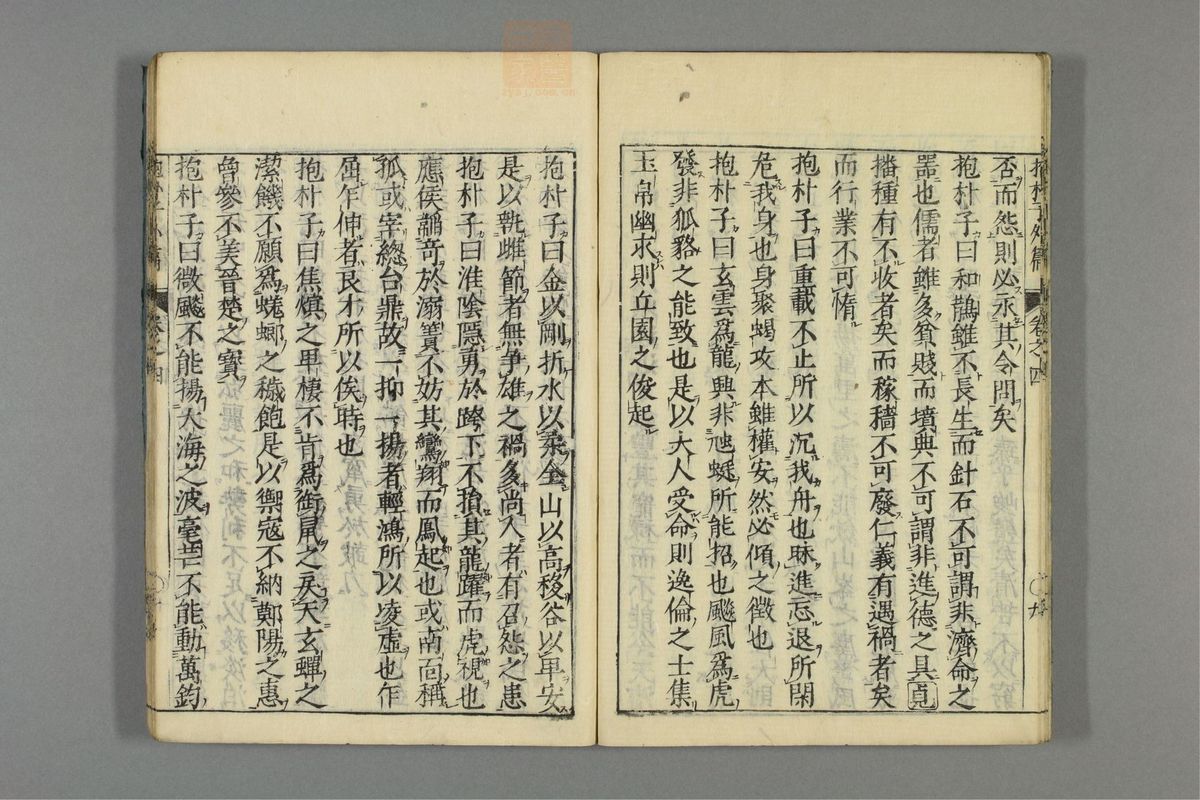 否而怨則必永其令問矣
抱朴子曰和鵲雖不長生而針石不可謂非濟命之
噐也儒者雖多貧賤而墳典不可謂非進德之具
播種有不收者矣而稼穡不可廢仁義有遇禍者矣
而行業不可惰
抱朴子曰重載不止所以沉我舟也昧進忘退所閑
危我身也身聚蝎攻本雖權安然必傾之徵也
抱朴子曰玄雲爲龍興非虵蜓所能招也飈風爲虎
發非狐貉之能致也是以大人受命則逸倫之士集
玉帛幽求則丘園之俊起
抱朴子曰金以剛折水以柔全山以高移谷以卑安
是以執雌節者無爭雄之禍多尚人者有召怨之患
抱朴子曰淮陰隱勇於跨下不損其龍躍而虎視也
應侯韜奇於溺簀不妨其鸞翔而鳳起也或南面稱
孤或宰總台鼎故一抑一揚者輕鴻所以凌虛也乍
屈乍伸者良才所以俟時也
抱朴子曰焦螟之卑棲不肯爲銜鼠之戾天玄蟬之
潔饑不願爲蜣蜋之穢飽是以禦寇不納鄭陽之惠
曾參不美晉楚之寳
抱朴子曰微飈不能揚大海之波毫芒不能動萬鈞
抱朴子外篇
卷之四